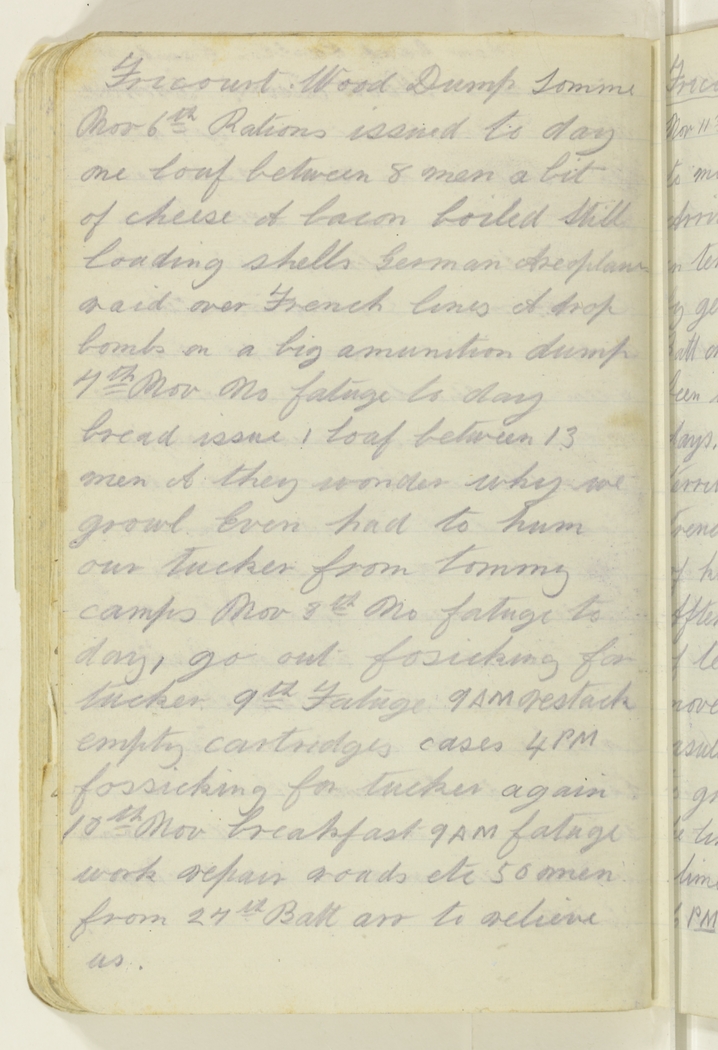 Fricourt. Wood Dump Somme
Nov 6th Rations issued to day
one loaf between 8 men a bit
of cheese & bacon boiled still
loading shells German Areoplane
raid over French lines & drop
bombs on a big amunition dump
7th Nov No fatuge to day
bread issue 1 loaf between 13
men & they wonder why we
growl. Even had to hum
our tucker from tommy
camps Nov 8th No fatuge to
day, go out fosicking for
tucker. 9th Fatuge 9AM restack
empty cartridges cases 4PM
fossicking for tucker again
10th Nov breakfast 9AM fatuge
work repair roads etc 50 men
from 24th Batt arr to relieve
us.
Nov 11
PM